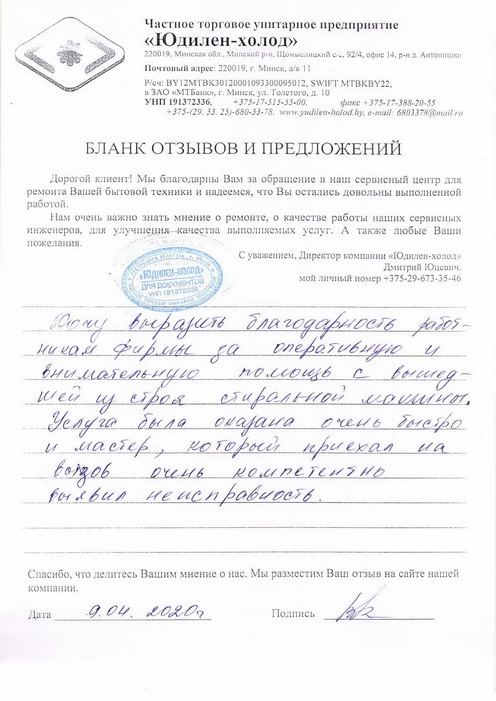 Частное торговое унитарное предприятие
«Юдилен-холод»
220019, Минская обл., Минский р-н, Щомыслицкий с/с, 92/4, офис 14, р-н д. Антонишки
Почтовый адрес: 220019, г. Минск, а/я 11
Р/сч: BY12MTBK30120001093300095012, SWIFT MTBKBY22,
в ЗАО «МТБанк», г. Минск, ул. Толстого, д. 10
УНП 191372336, +375-17-515-55-00, факс +375-17-388-20-55
+375-(29. 33. 25)-680-33-78. www.yudilen-holod.by, e-mail: 6803378@mail.ru
БЛАНК ОТЗЫВОВ И ПРЕДЛОЖЕНИЙ
Дорогой клиент! Мы благодарны Вам за обращение в наш сервисный центр для
ремонта Вашей бытовой техники и надеемся, что Вы остались довольны выполненной
работой.
Нам очень важно знать мнение о ремонте, о качестве работы наших сервисных
инженеров, для улучшения качества выполняемых услуг. А также любые Ваши
пожелания.
С уважением, Директор компании «Юдилен-холод»
Дмитрий Юцевич.
мой личный номер +375-29-673-35-46
«ЮДИЛЕН-ХОЛОД»
ДЛЯ ДОКУМЕНТОВ
УНП 191372336
Хочу выразить благодарность работ-
никам фирмы за оперативную и
внимательную помощь с вышед-
шей из строя стиральной машины.
Услуга была оказана очень быстро
и мастер, который приехал на
вызов очень компетентно
выявил неисправность.
Спасибо, что делитесь Вашим мнение о нас. Мы разместим Ваш отзыв на сайте нашей
компании.
Дата 9.04. 2020г Подпись